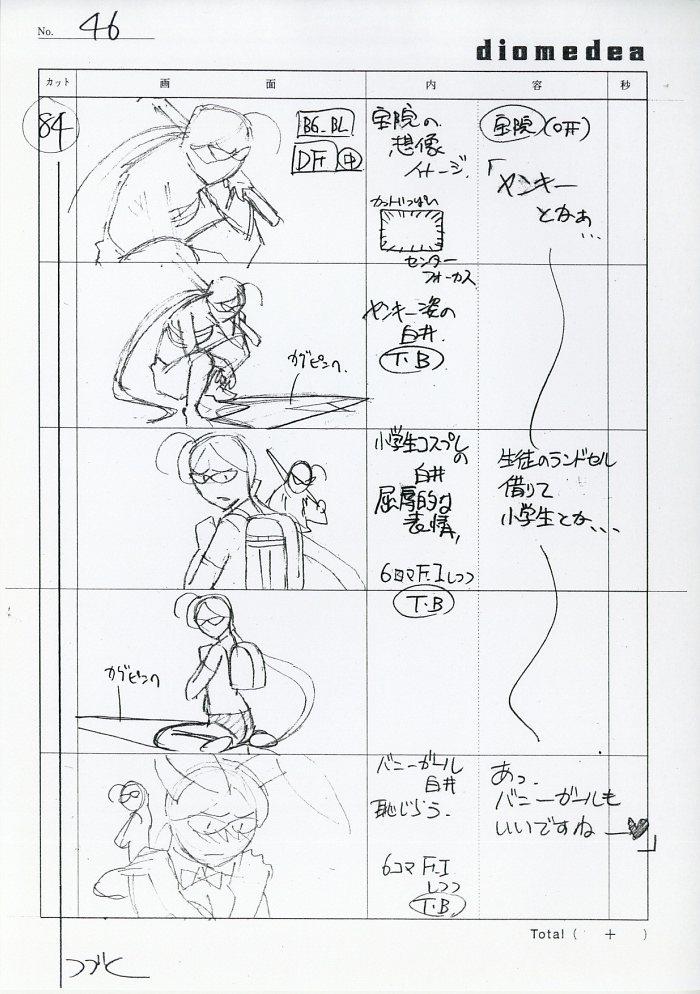 No. 46
diomedea
カット 画面 内容 秒
84
BG.BL
DF 中
宝院の
想像
イメージ.
カットいっぱい
センター
フォーカス
宝院
「ヤンキー
とかぁ…
ヤンキー姿の
白井.
T.B
カゲピンへ.
小学生コスプレの
白井
屈辱的な
表情,
6コマF.Iしつつ
T.B
生徒のランドセル
借りて
小学生とか、、、
カゲピンへ
バニーガール
白井
恥じらう.
6コマF.I
しつつ
T.B
あっ.
バニーガールも
いいですね―♥」
Total ( + )
つづく